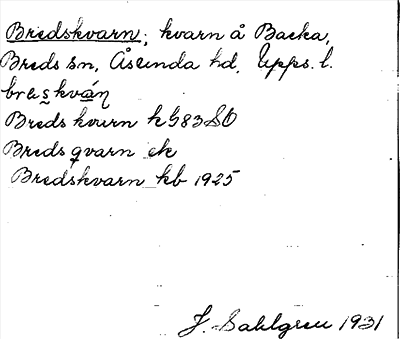 Bredskvarn, kvarn å Backa,
Breds sn, Åsunda hd, Upps. l.
breskván
Breds kvarn hG83SO
Breds qvarn ek
Bredskvarn kb 1925
J. Sahlgren 1931